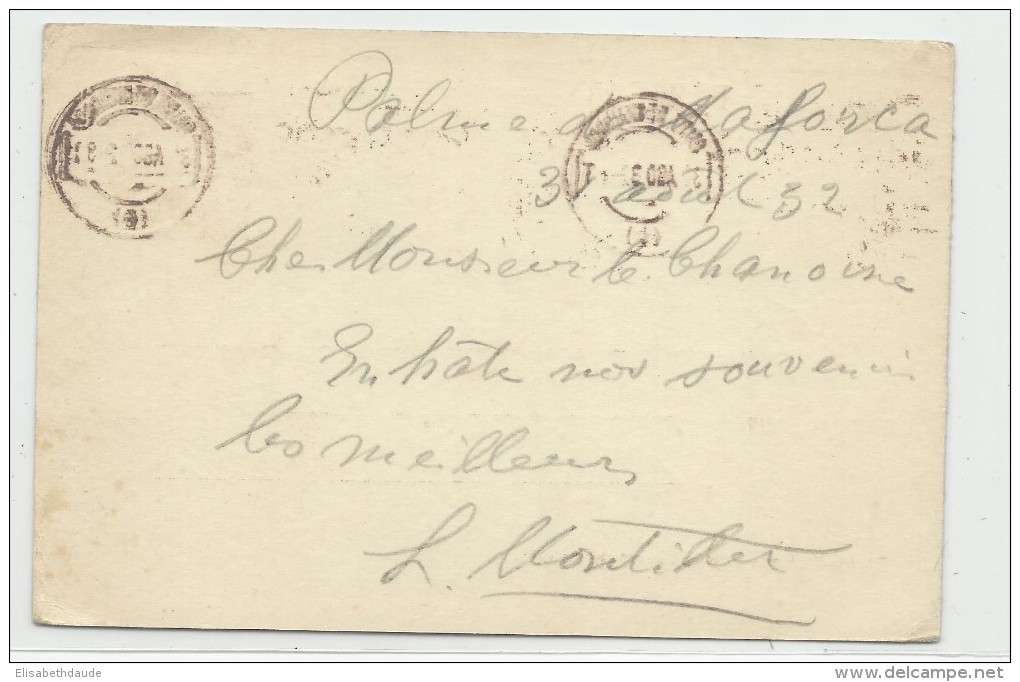 Palma de Mallorca
août 32
Cher Monsieur le Chanoine
En hâte nos souvenirs
les meilleurs
L.
Elisabethdaude
www.delcampe.net